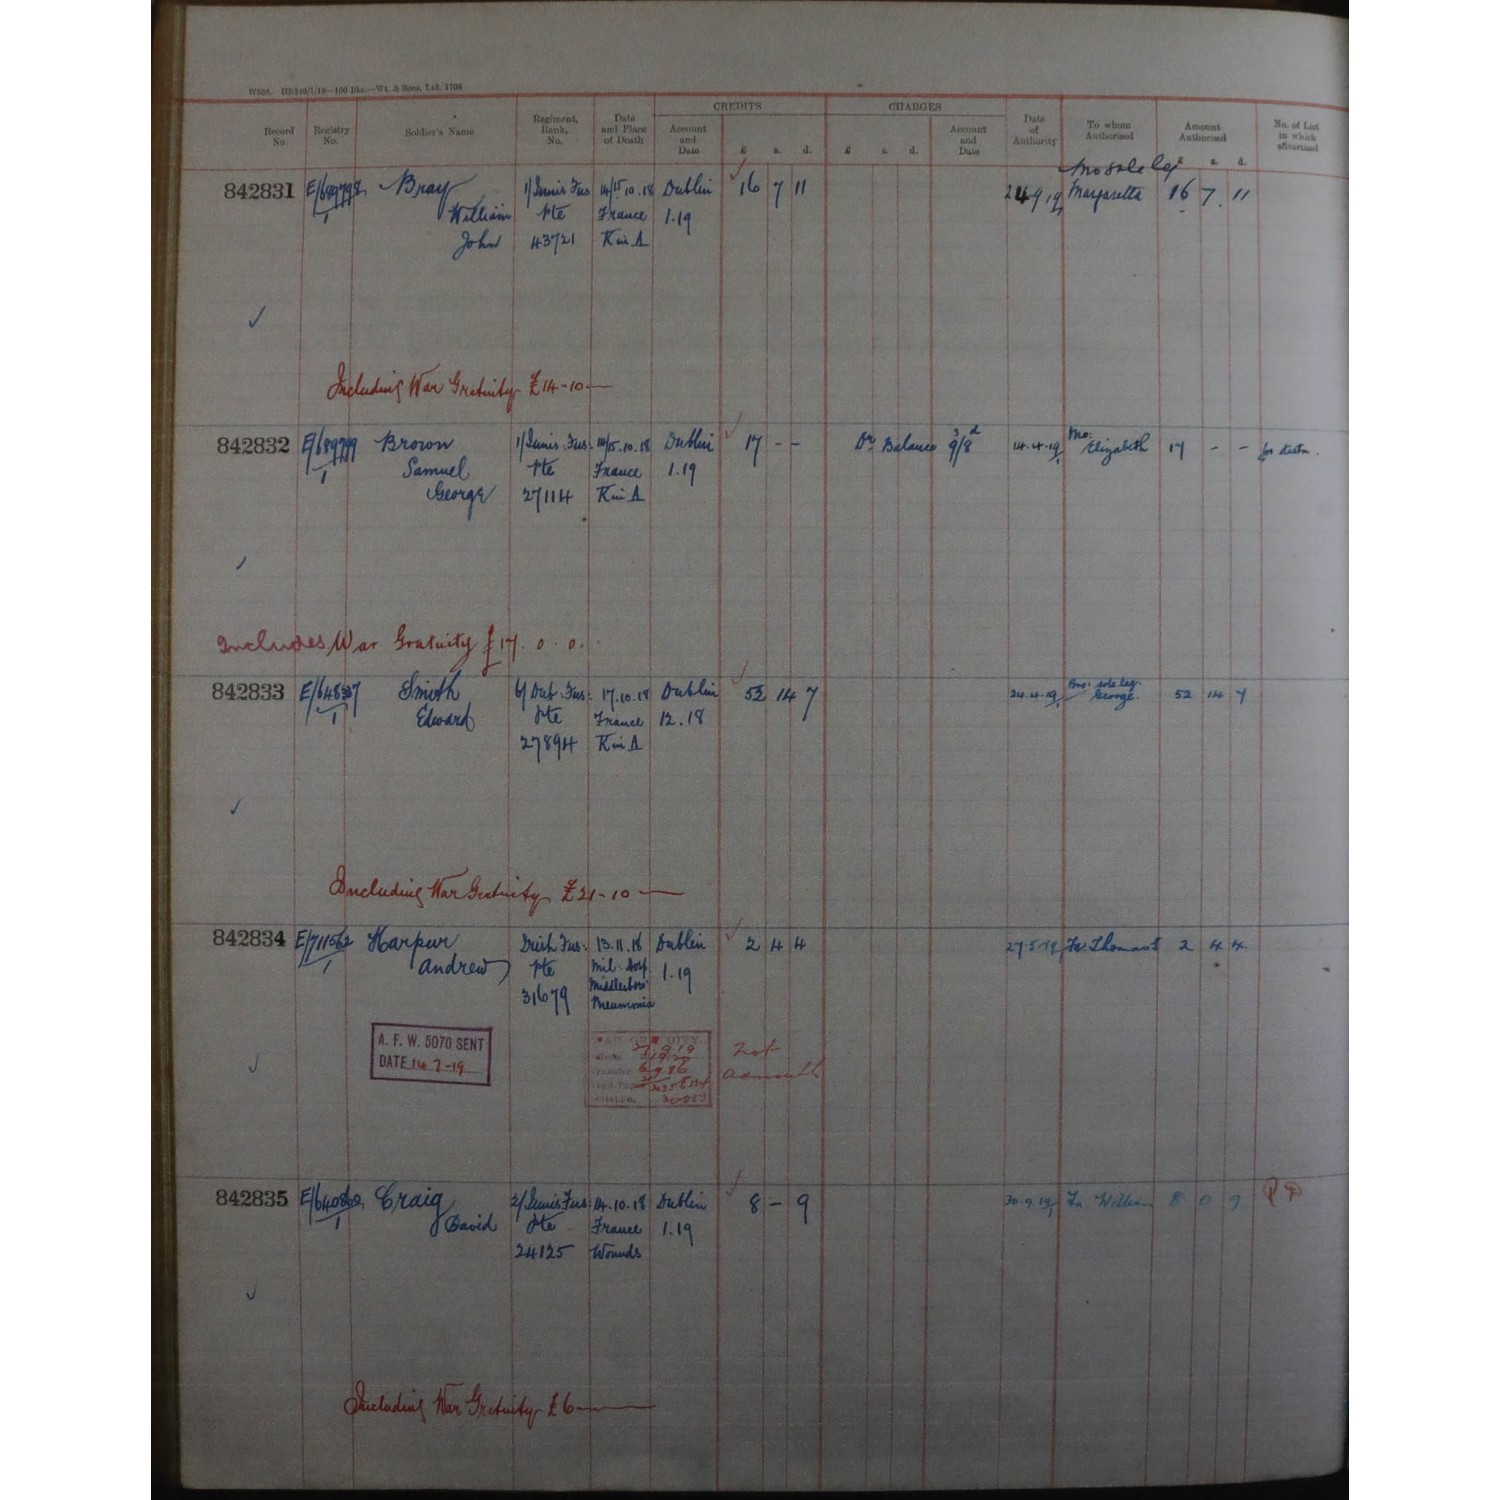 CREDITS CHARGES
Record No. Registry No. Soldier's Name Regiment, Rank, No. Date and Place of Death Account and Date £ s. d. £ s. d. Account and Date Date of Authority To whom Authorised Amount Authorised £ s. d. No. of List in which advertised
Mo sole leg
842831 Bray 1/Innis Fus 14/15.10.18 Dublin 16 7 11 Margaretta 16 7 11
William Pte France 1.19
John 43721 K in A
Including War Gratuity £14-10—
842832 E/689799/1 Brown 1/Innis. Fus. 14/15.10.18 Dublin 17 - - Dr. Balance 3/8d 14.4.19 Mo: Elizabeth 17 - -
Samuel Pte France 1.19
George 27114 K in A
Includes War Gratuity £17. 0. 0.
842833 Smith 6/Dub. Fus. 17.10.18 Dublin 52 14 7 24.4.19 Bro: sole leg. George 52 14 7
Edward Pte France 12.18
27894 K in A
Including War Gratuity £21-10—
842834 E/711562/1 Harpur Irish Fus. 13.11.18 Dublin 2 4 4 27.5.19 Fa: Thomas S 2 4 4
Andrew Pte Mil. Hosp 1.19
31679 Middlesboro'
Pneumonia
A. F. W. 5070 SENT
DATE 14.7-19
Not
admissible
842835 Craig 2/Innis Fus. 14.10.18 Dublin 8 - 9 30.9.19 Fa William 8 0 9
David Pte France 1.19
24125 Wounds
Including War Gratuity £6—